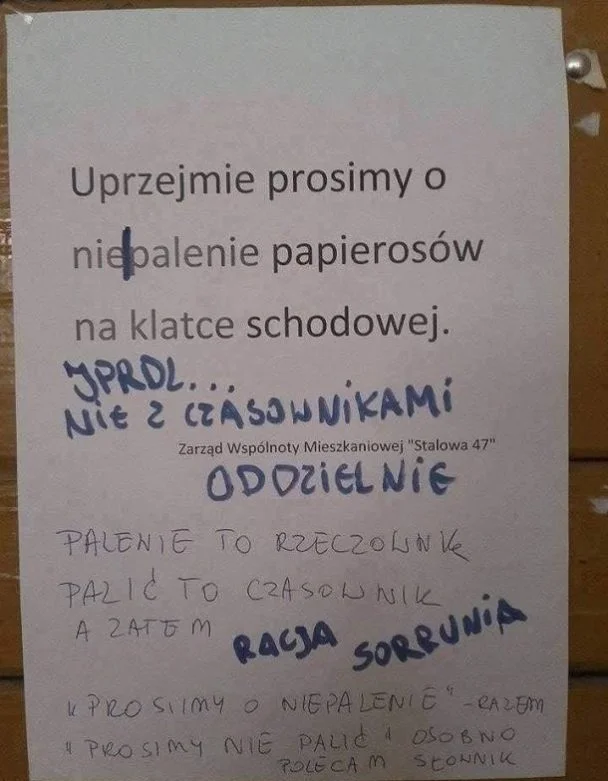 Uprzejmie prosimy o
nie|palenie papierosów
na klatce schodowej.
JPRDL...
NIE Z CZASOWNIKAMI
Zarząd Wspólnoty Mieszkaniowej "Stalowa 47"
ODDZIELNIE
PALENIE TO RZECZOWNIK
PALIĆ TO CZASOWNIK
A ZATEM
RACJA SORRUNIA
"PROSIIMY O NIEPALENIE" - RAZEM
"PROSIMY NIE PALIĆ" OSOBNO
POLECAM SŁOWNIK